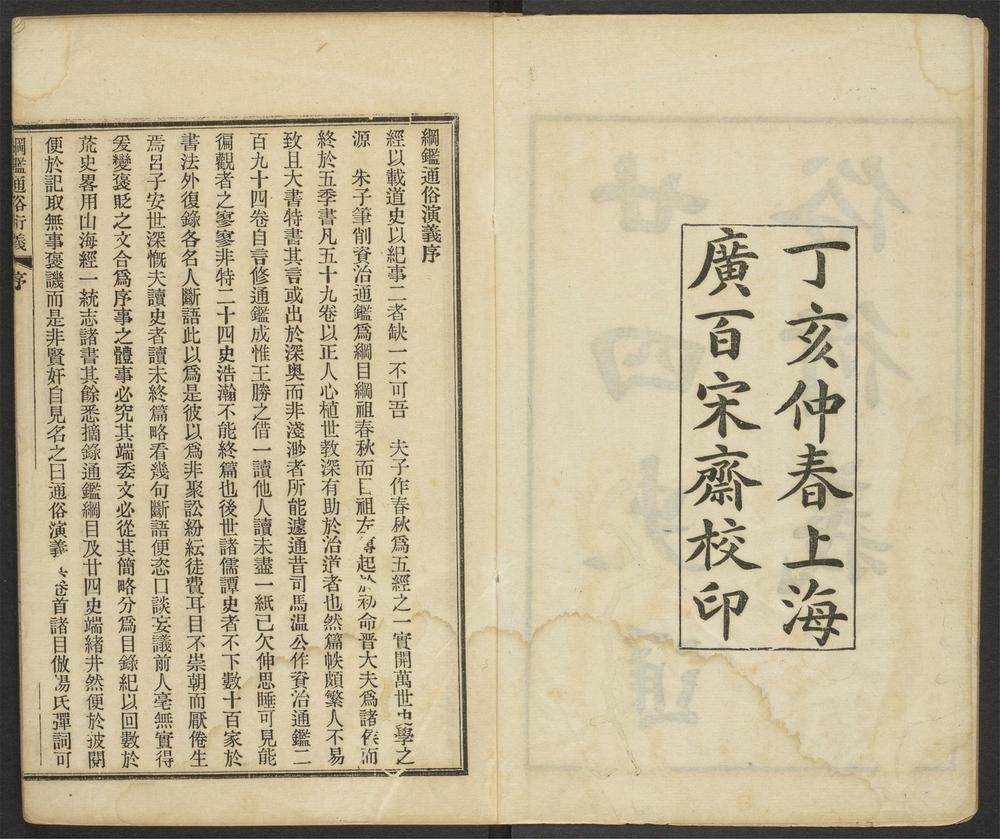 丁亥仲春上海
廣百宋齋校印
綱鑑通俗演義序
經以載道史以紀事二者缺一不可吾　夫子作春秋為五經之一實開萬世史學之
源　朱子筆削資治通鑑為綱目綱祖春秋而目祖左傳起於初命晉大夫為諸侯而
終於五季書凡五十九卷以正人心植世教深有助於治道者也然篇帙頗繁人不易
致且大書特書其言或出於深奥而非淺渺者所能遽通昔司馬温公作資治通鑑二
百九十四卷自言修通鑑成惟王勝之借一讀他人讀未盡一紙已欠伸思睡可見能
徧觀者之寥寥非特二十四史浩瀚不能終篇也後世諸儒譚史者不下數十百家於
書法外復錄各名人斷語此以為是彼以為非聚訟紛紜徒費耳目不崇朝而厭倦生
焉呂子安世深慨夫讀史者讀未終篇略看幾句斷語便恣口談妄議前人毫無實得
爰變褒貶之文合為序事之體事必究其端委文必從其簡略分為目錄紀以回數於
荒史畧用山海經一統志諸書其餘悉摘錄通鑑綱目及廿四史端緒井然便於披閱
便於記取無事褒譏而是非賢奸自見名之曰通俗演義　卷首諸目倣湯氏彈詞可
綱鑑通俗衍義　序